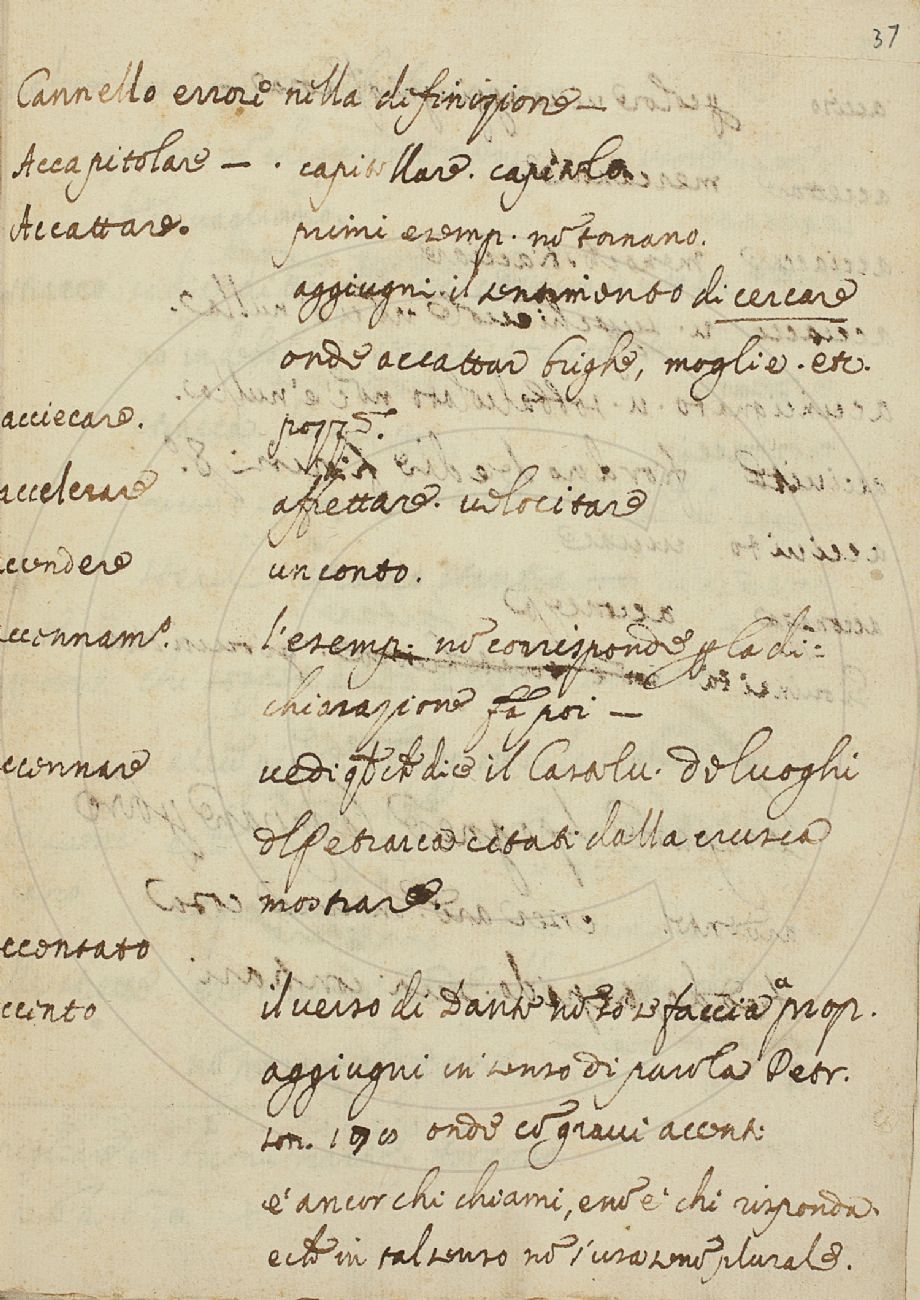 37
Cannello errore nella definizione —
Accapitolare — . capitollare. capitolo
Accattare. primi esemp. nō tornano.
aggiugni. il sentimento di cercare
onde accattar brighe, moglie. etc.
acciecare.
accelerare affrettare. velocitare
ccendere un conto.
ccennamto. l'esemp: nō corrisponde alla di:
chiarazione
ccennare vedi qto che dice il Castelv. De luoghi
del Petrarca citati dalla crusca
mostrare.
ccentato
ccento il verso di Dante nō so se faccia a prop.
aggiugni in senso di parola Petr.
son. onde cō gravi accenti
è ancor chi chiami, e nō è chi risponda.
e che in tal senso nō s'usa se nō plurale.